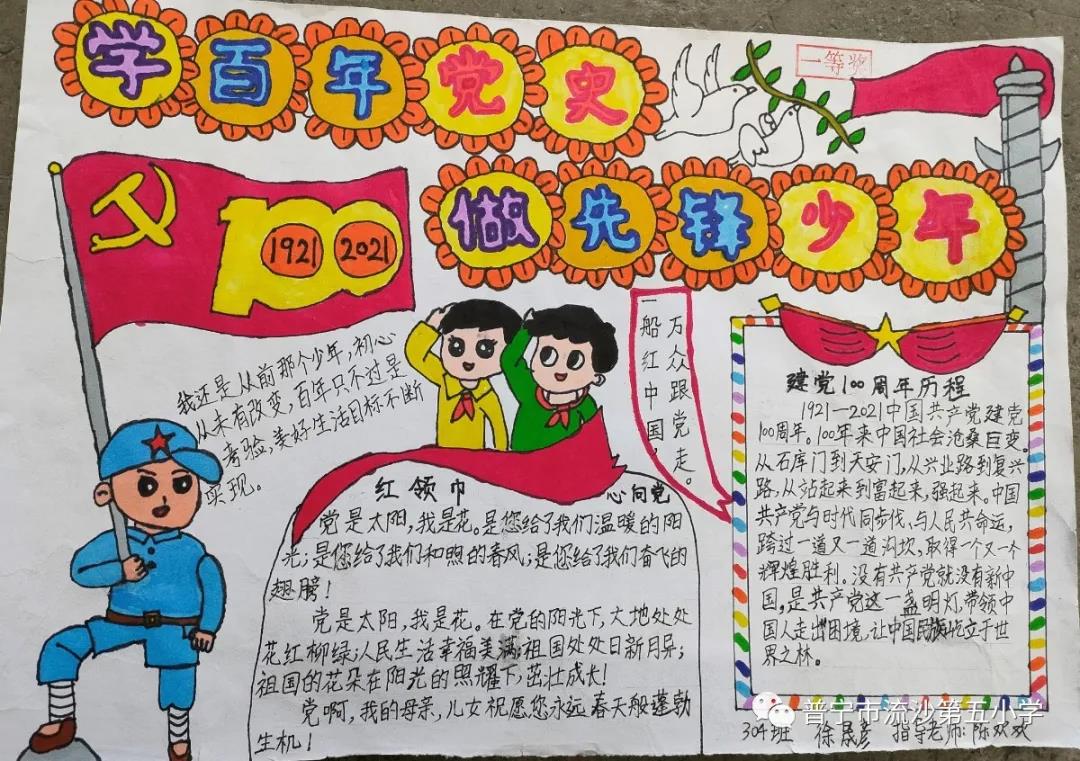 学百年党史
一等奖
做先锋少年
100
1921 2021
我还是从前那个少年,初心
从未有改变,百年只不过是
考验,美好生活目标不断
实现。
万众跟党走。
一船红中国,
红领巾 心向党
党是太阳,我是花。是您给了我们温暖的阳
光;是您给了我们和煦的春风;是您给了我们奋飞的
翅膀!
党是太阳,我是花。在党的阳光下,大地处处
花红柳绿;人民生活幸福美满;祖国处处日新月异;
祖国的花朵在阳光的照耀下,茁壮成长!
党啊,我的母亲,儿女祝愿您永远春天般蓬勃
生机!
建党100周年历程
1921—2021中国共产党建党
100周年。100年来中国社会沧桑巨变。
从石库门到天安门,从兴业路到复兴
路,从站起来到富起来,强起来。中国
共产党与时代同步伐、与人民共命运,
跨过一道又一道沟坎,取得一个又一个
辉煌胜利。没有共产党就没有新中
国,是共产党这一盏明灯,带领中
国人走出困境,让中国民族屹立于世
界之林。
普宁市流沙第五小学
304班 徐晟彦 指导老师:陈欢欢